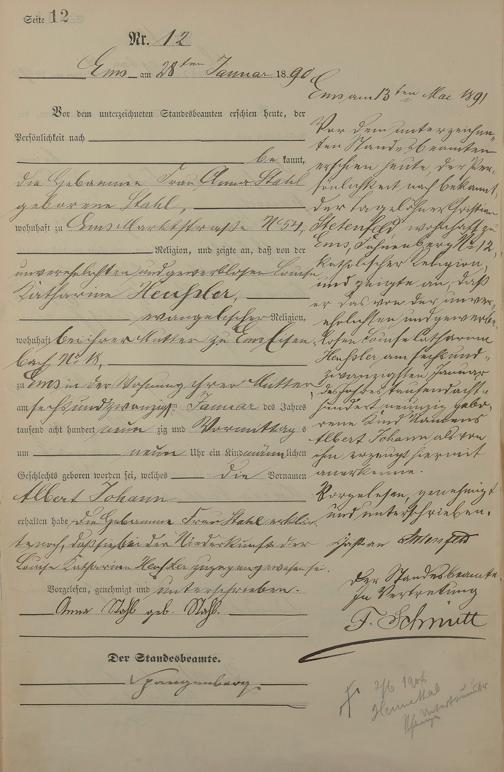 Seite 12
Nr. 12
Ems am 28ten Januar 1890
Vor dem unterzeichneten Standesbeamten erschien heute, der
Persönlichkeit nach
be kannt,
die Hebamme Frau Anna Stahl
geborene Stahl,
wohnhaft zu Ems Marktstraße No 54,
Religion, und zeigte an, daß von der
unverehelichten und gewerblosen Louise
Catharine Heuszler,
evangelischer Religion,
wohnhaft bei ihrer Mutter zu Ems Eisen
bach No 18,
zu Ems in der Wohnung ihrer Mutter,
am sechsundzwanzig ten Januar des Jahres
tausend acht hundert neun zig und Vormittag s
um neun Uhr ein Kind männlichen
Geschlechts geboren worden sei, welches die Vornamen
Albert Johann
erhalten habe. Die Hebamme Frau Stahl erklär
te noch, daß sie bei der Niederkunft der
Louise Catharine zugegen gewesen sei.
Vorgelesen, genehmigt und unterschrieben.
Anna Stahl geb. Stahl.
Der Standesbeamte.
Spangenberg
Ems am 13ten Mai 1891
Vor dem unterzeichne
ten Standesbeamten
erschien heute, der Per
sönlichkeit nach bekannt,
der Tagelöhner
wohnhaft zu
Ems, No 12,
katholischer Religion,
und zeigte an, daß
er das von der unver
ehelichten und gewerb
losen Louise Catharine
am sechsund
zwanzigsten Januar
des Jahres tausend acht
hundert neunzig gebo
rene Kind Namens
Albert Johann als von
ihm erzeugt hiermit
anerkenne.
Vorgelesen, genehmigt
und unterschrieben.
Der Standesbeamte
In Vertretung
F. Schmitt